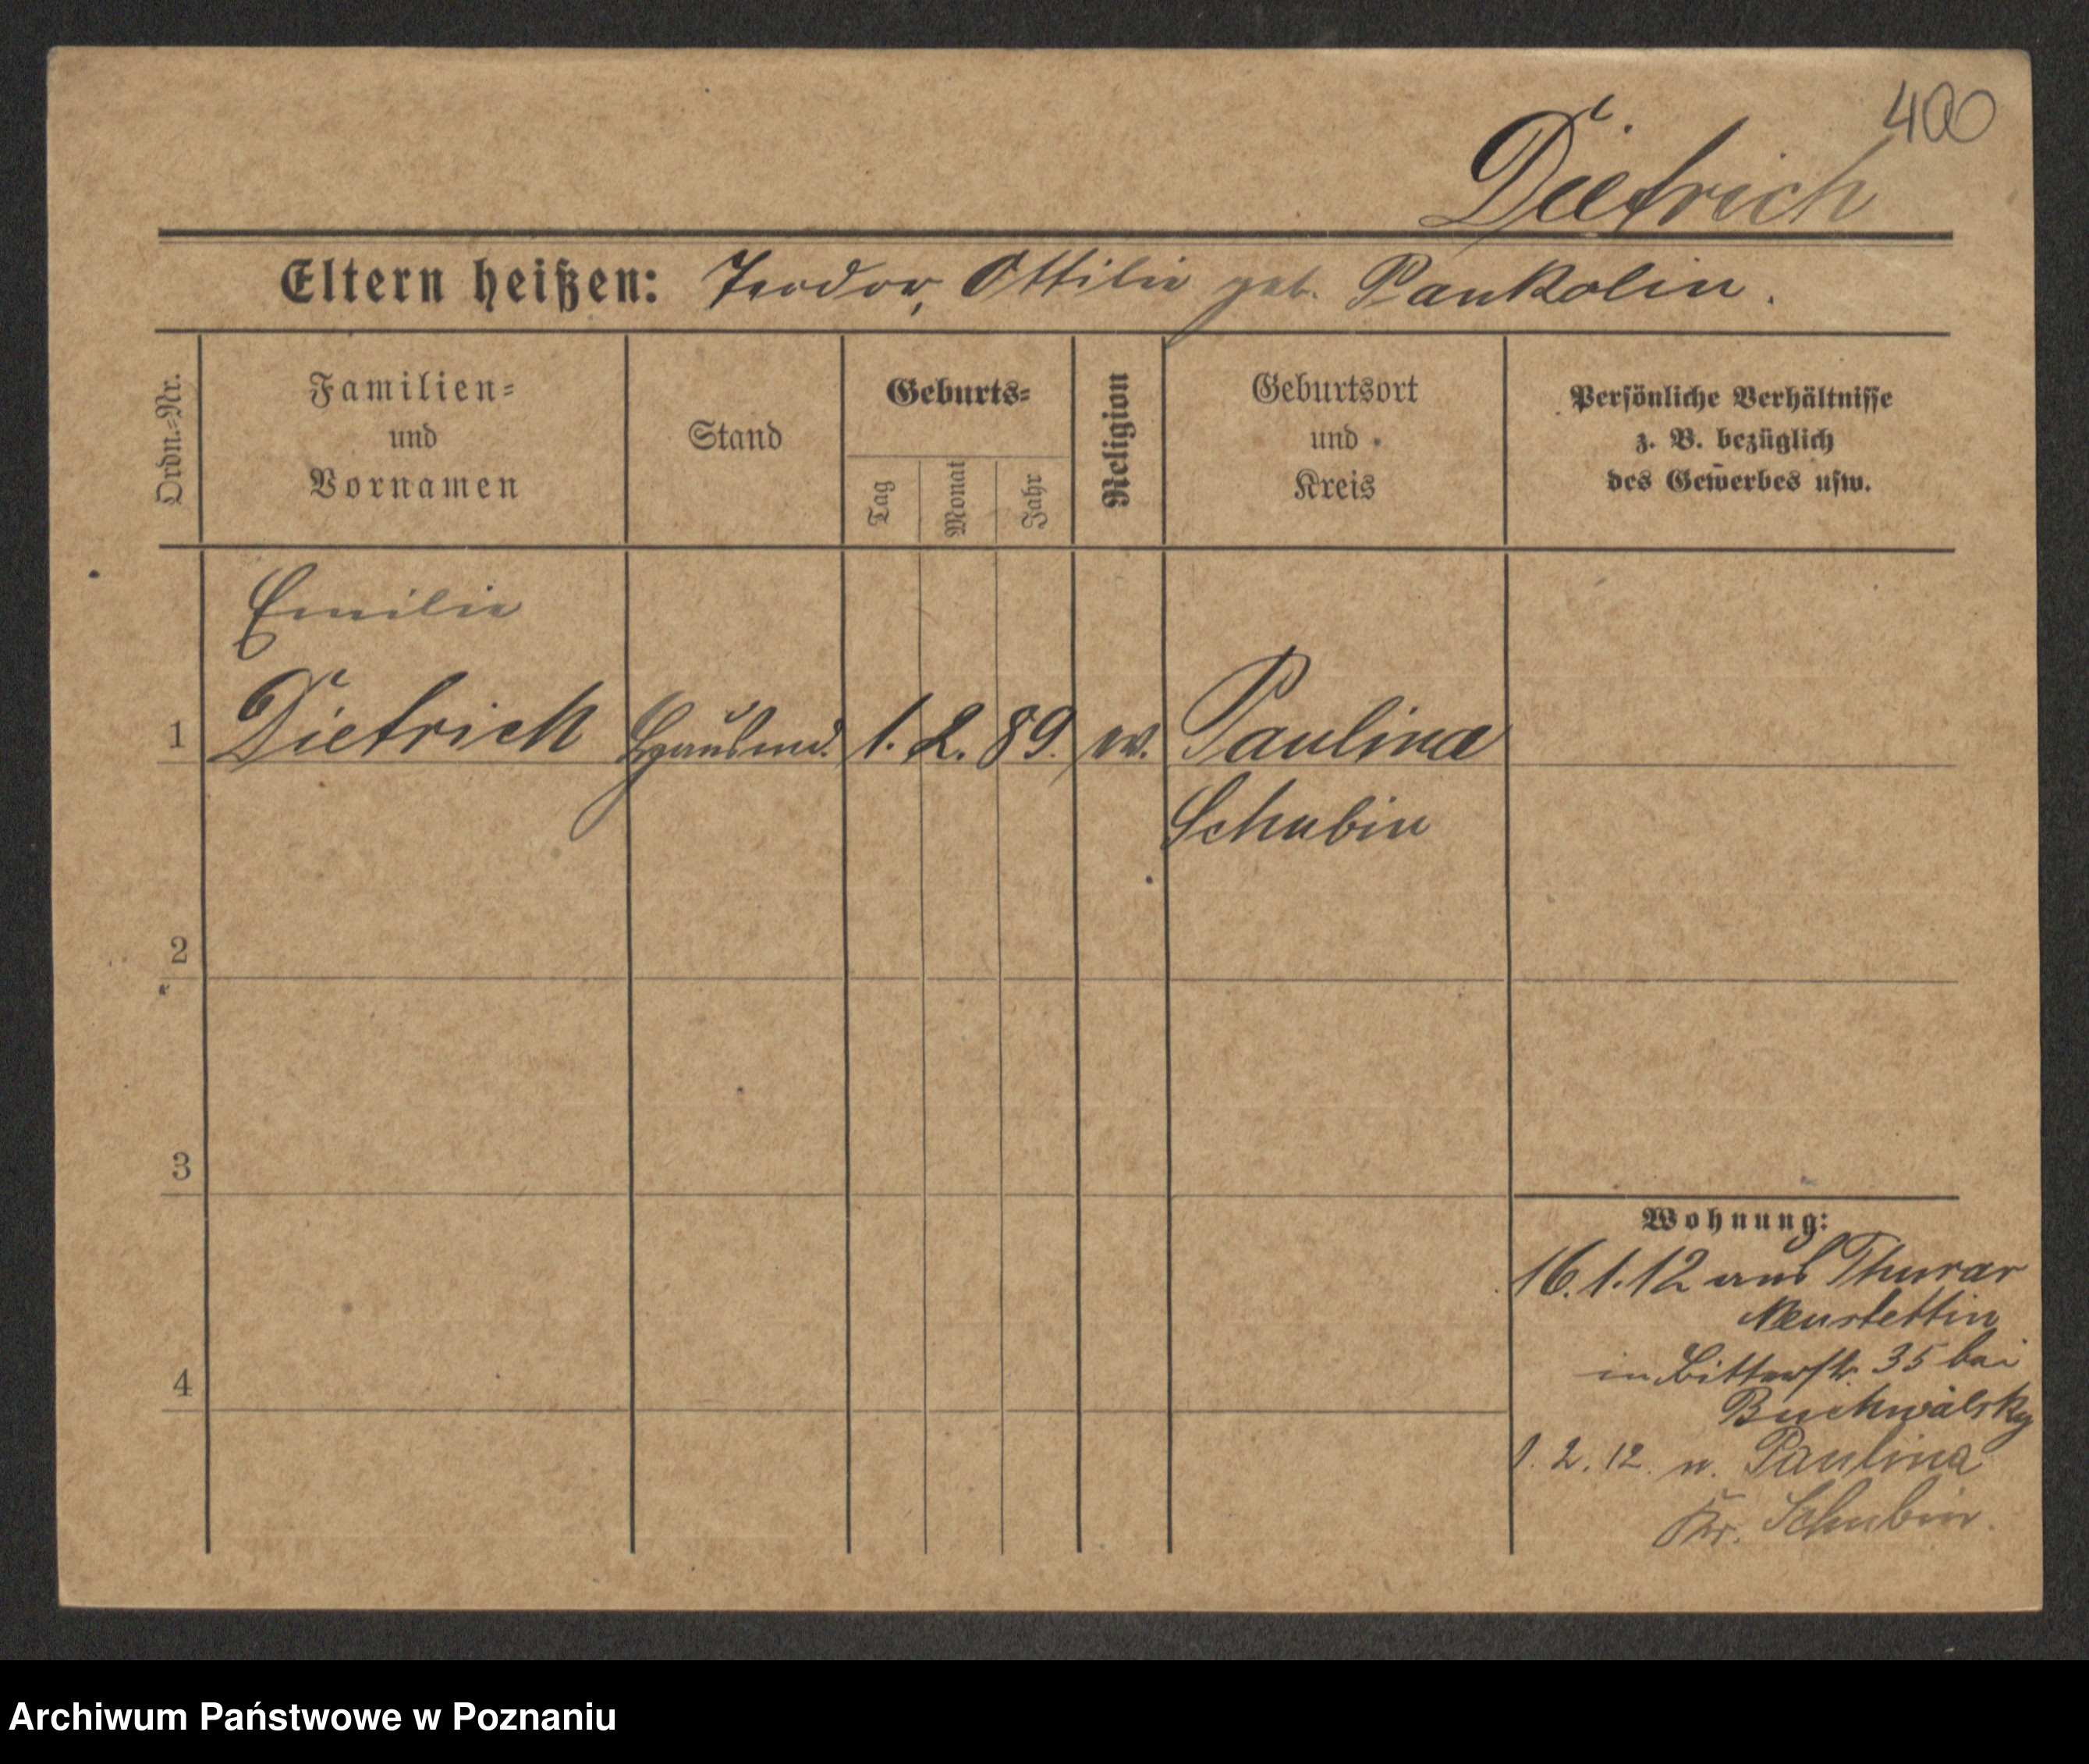 400
Dietrich
Eltern heißen: Teodor, Ottilie geb. Pankolin.
Ordn.-Nr.
Familien-
und
Vornamen
Stand
Geburts-
Tag
Monat
Jahr
Religion
Geburtsort
und
Kreis
Persönliche Verhältnisse
z. B. bezüglich
des Gewerbes usw.
Emilie
1 Dietrich Hausmd. 1. 2. 89. ev. Paulina
Schubin
2
3
Wohnung:
16.1.12 aus Thurar
Neustettin
in Bitterstr. 35 bei
4
Buchwalsky
1. 2. 12. n. Paulina
Kr. Schubin.
Archiwum Państwowe w Poznaniu